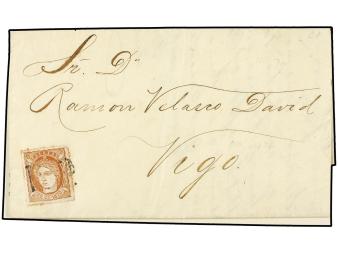 Sr. Dn
Ramon Velasco David
Vigo.